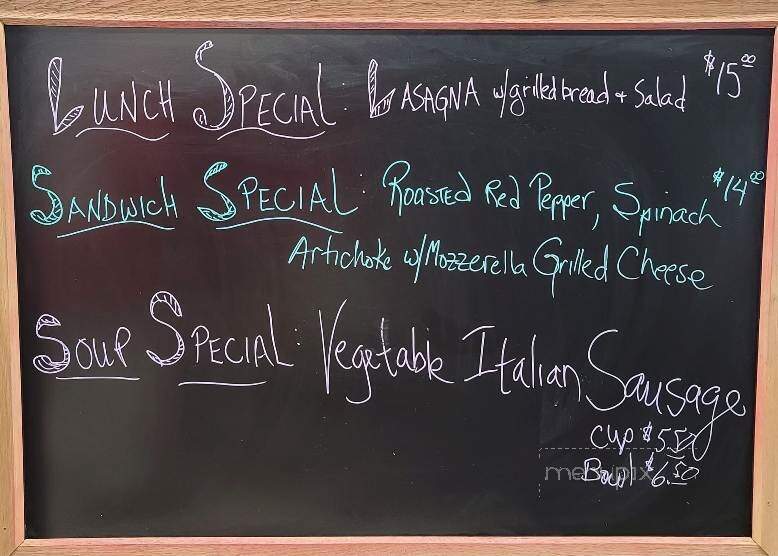 Lunch Special: Lasagna w/grilled bread + Salad $15.00
Sandwich Special: Roasted Red Pepper, Spinach $14.00
Artichoke w/Mozzerella Grilled Cheese
Soup Special: Vegetable Italian Sausage
Cup $5.50
Bowl $6.50
menupix